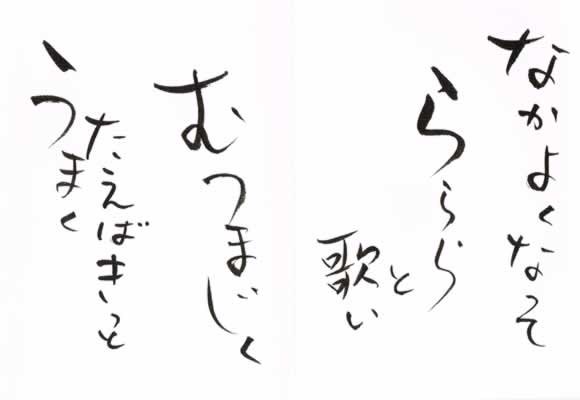 なかよくなって
ららら
と
歌い
むつまじく
たえばきっと
うまく